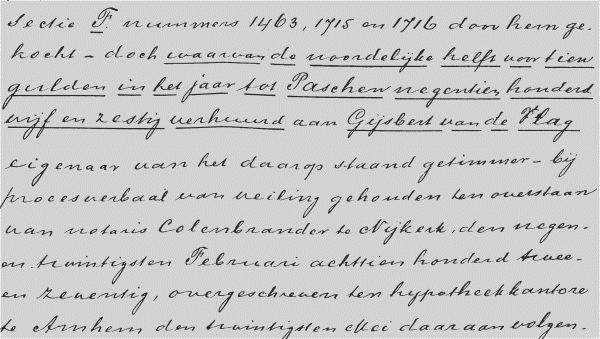 sectie F. nummers 1463, 1715 en 1716 door hem ge-
kocht - doch waarvan de noordelijke helft voor tien
gulden in het jaar tot Paschen negentien honderd
vijf en zestig verhuurd aan Gijsbert van de Vlag
eigenaar van het daarop staand getimmer - bij
procesverbaal van veiling gehouden ten overstaan
van notaris Colenbrander te Nijkerk, den negen-
en twintigsten Februari achttien honderd twee-
en zeventig, overgeschreven ten hypotheekkantore
te Arnhem den twintigsten Mei daaraanvolgen-